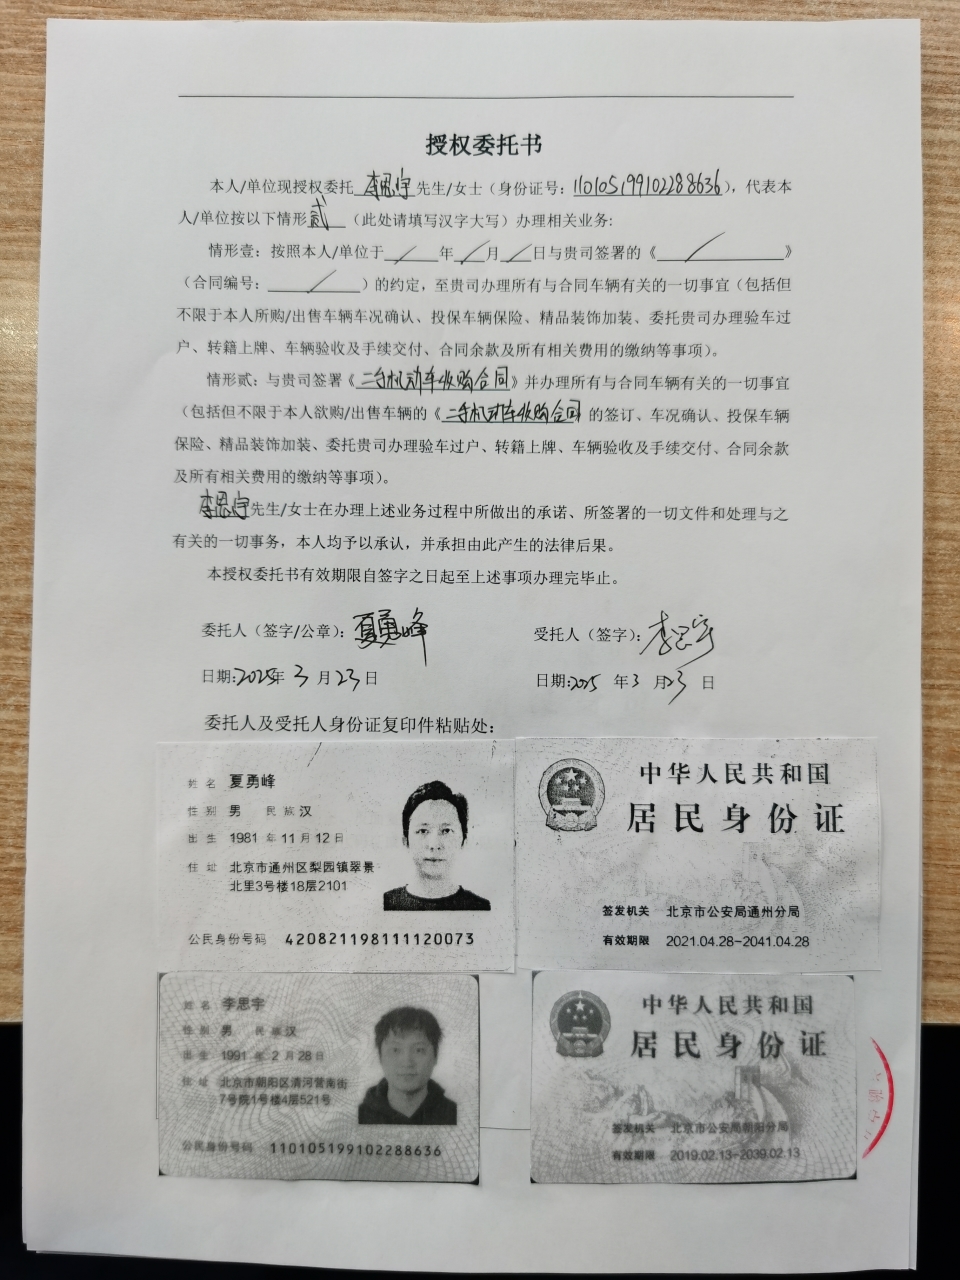 授权委托书
本人/单位现授权委托 李思宇 先生/女士（身份证号：110105199102288636），代表本
人/单位按以下情形 贰 （此处请填写汉字大写）办理相关业务：
情形壹：按照本人/单位于 / 年 / 月 / 日与贵司签署的《 / 》
（合同编号： / ）的约定，至贵司办理所有与合同车辆有关的一切事宜（包括但
不限于本人所购/出售车辆车况确认、投保车辆保险、精品装饰加装、委托贵司办理验车过
户、转籍上牌、车辆验收及手续交付、合同余款及所有相关费用的缴纳等事项）。
情形贰：与贵司签署《二手机动车收购合同》并办理所有与合同车辆有关的一切事宜
（包括但不限于本人欲购/出售车辆的《二手机动车收购合同 的签订、车况确认、投保车辆
保险、精品装饰加装、委托贵司办理验车过户、转籍上牌、车辆验收及手续交付、合同余款
及所有相关费用的缴纳等事项）。
李思宇先生/女士在办理上述业务过程中所做出的承诺、所签署的一切文件和处理与之
有关的一切事务，本人均予以承认，并承担由此产生的法律后果。
本授权委托书有效期限自签字之日起至上述事项办理完毕止。
委托人（签字/公章）：夏勇峰 受托人（签字）：李思宇
日期:2025年 3 月 23 日 日期:2025 年 3 月 23 日
委托人及受托人身份证复印件粘贴处：
姓名 夏勇峰
性别 男 民族 汉
出生 1981 年 11 月 12 日
住址 北京市通州区梨园镇翠景
北里3号楼18层2101
公民身份号码 420821198111120073
中华人民共和国
居民身份证
签发机关 北京市公安局通州分局
有效期限 2021.04.28-2041.04.28
姓名 李思宇
性别 男 民族 汉
出生 1991 年 2 月 28 日
住址 北京市朝阳区清河营南街
7号院1号楼4层521号
公民身份号码 110105199102288636
中华人民共和国
居民身份证
签发机关 北京市公安局朝阳分局
有效期限 2019.02.13-2039.02.13